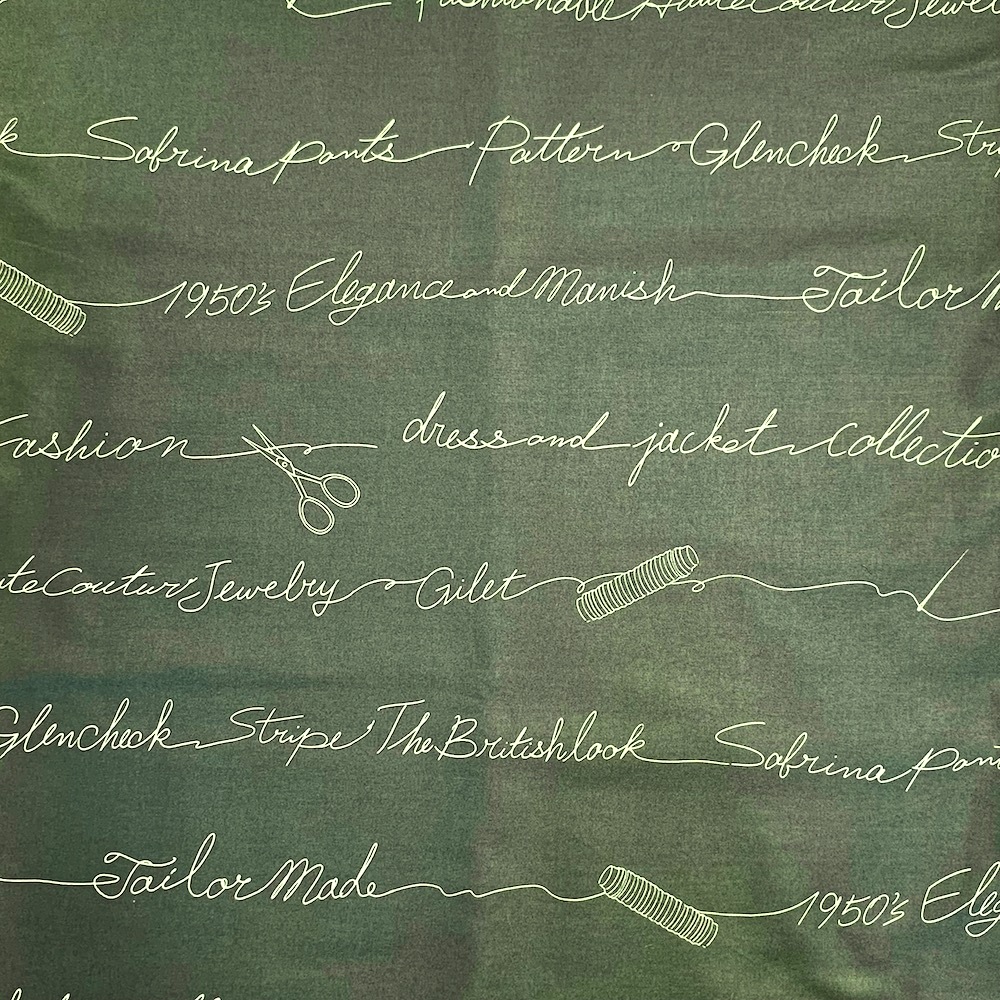 Fashionable HauteCoutur Jewel
k Sabrina pants Pattern Glencheck Stri
1950's Elegance and Manish Tailor M
Fashion dress and jacket collectio
uteCoutur Jewelry Gilet
Glencheck Stripe The British look Sabrina pant
Tailor Made 1950's Eleg